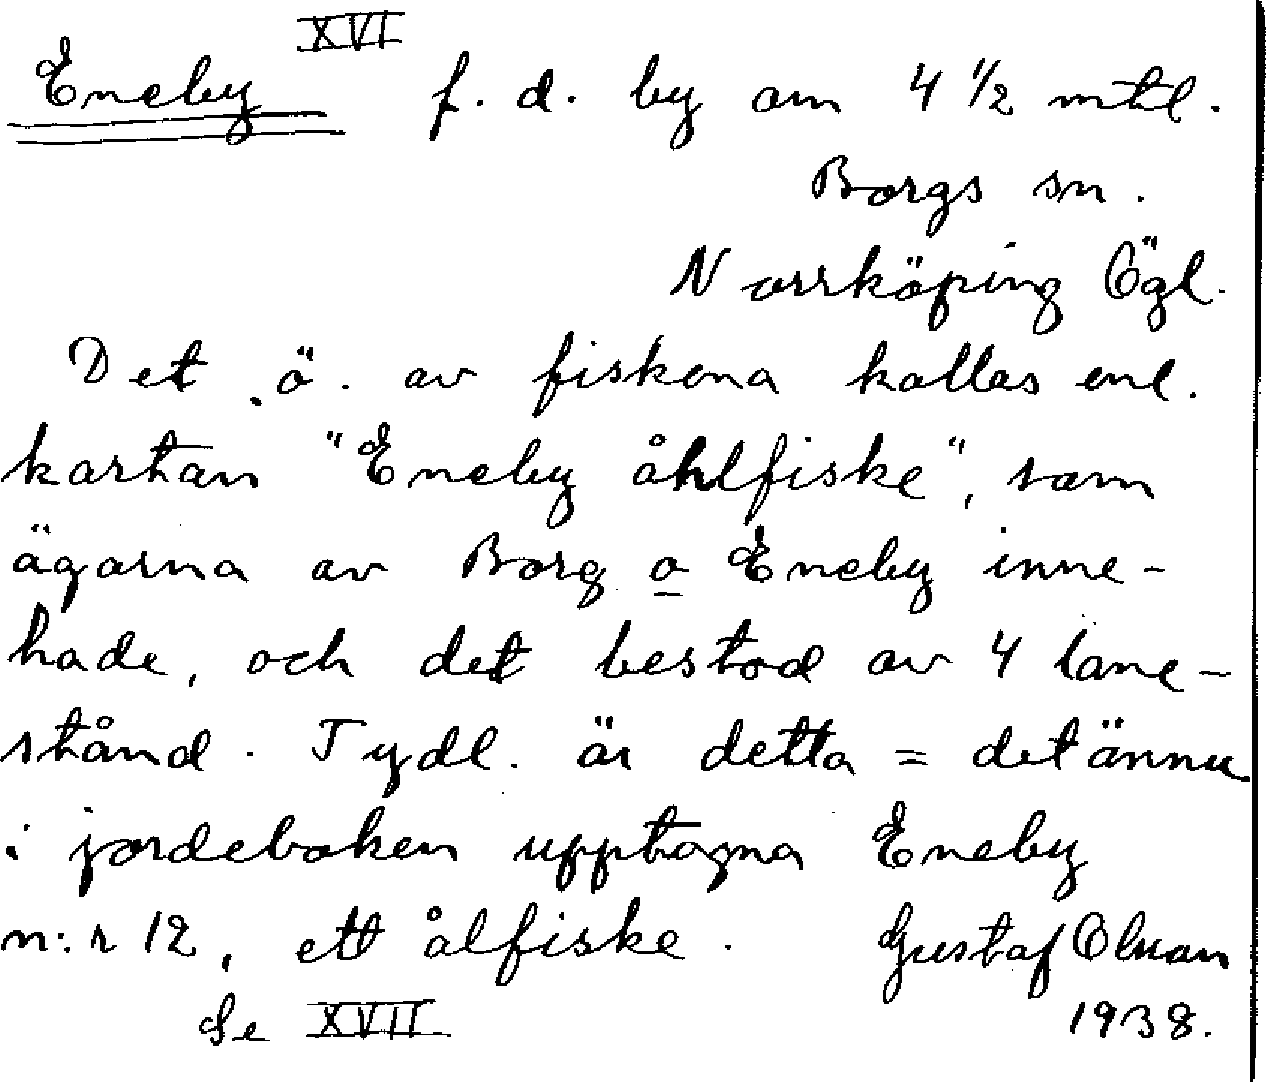 XVI
Eneby f. d. by om 4 1/2 mtl.
Borgs sn.
Norrköping Ögl.
Det ö. av fiskena kallas enl.
kartan "Eneby åhlfiske", som
ägarna av Borg o Eneby inne-
hade, och det bestod av 4 lane-
stånd. Tydl. är detta = det ännu
i jordeboken upptagna Eneby
n:r 12, ett ålfiske. Gustaf Olsson
Se XVII 1938.